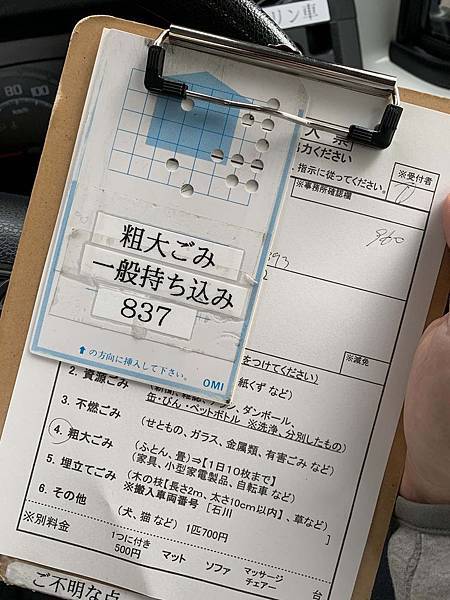 リン車
80 100
力ください
指示に従ってください。
※受付者
※事務所確認欄
960
393
2
粗大ごみ
一般持ち込み
837
⬆の方向に挿入して下さい。
OMI
をつけてください)
※減免
紙くず など)
2. 資源ごみ
ダンボール、
缶・びん・ペットボトル ※洗浄、分別したもの)
3. 不燃ごみ
(せともの、ガラス、金属類、有害ごみ など)
4. 粗大ごみ
(ふとん、畳)⇒【1日10枚まで】
(家具、小型家電製品、自転車 など)
5. 埋立てごみ
(木の枝【長さ2m、太さ10cm以内】、草など)
※搬入車両番号 [石川 ]
6. その他
(犬、猫 など) 1匹700円
※別料金
1つに付き
500円
マット
ソファ
マッサージ
チェアー
台
ご不明な点